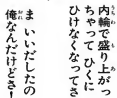 内輪で盛り上がっ
ちゃって ひくに
ひけなくなってさ
ま いいだしたの
俺なんだけどさ!